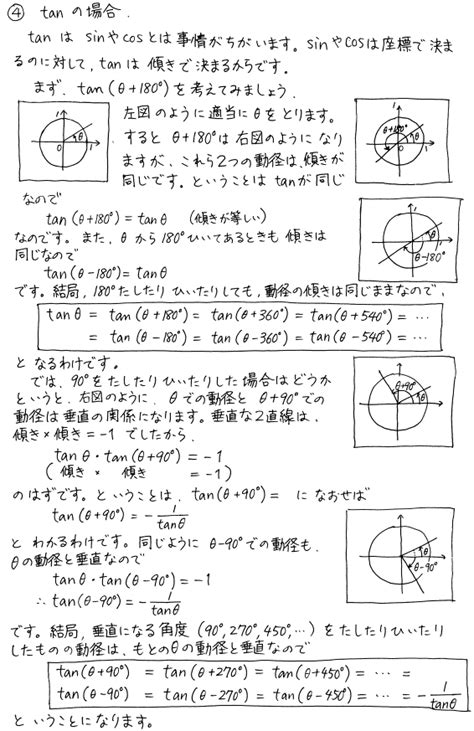 ④ tan の場合.
tan は sinやcosとは事情がちがいます。sinやcosは座標で決ま
るのに対して, tanは 傾きで決まるからです。
まず, tan(θ+180°)を考えてみましょう.
左図のように適当にθをとります。
すると θ+180°は右図のようになり
ますが、これら2つの動径は、傾きが
同じです。ということは tanが同じ
1
θ
0
1
θ+180°
1
θ
0
1
なので
tan(θ+180°)=tanθ (傾きが等しい)
なのです。また, θから180°ひいてあるときも 傾きは
同じなので
tan(θ-180°)=tanθ
1
θ
1
θ-180°
です。結局, 180°たしたり ひいたりしても, 動径の傾きは同じままなので,
tanθ = tan(θ+180°) = tan(θ+360°) = tan(θ+540°) = …
= tan(θ-180°) = tan(θ-360°) = tan(θ-540°) = …
と なるわけです。
では, 90°をたしたりひいたりした場合はどうか
というと、右図のように、θでの動径と θ+90°での
動径は垂直の関係になります。垂直な2直線は、
傾き×傾き=-1 でしたから,
θ+90°
θ
tanθ・tan(θ+90°) = -1
( 傾き × 傾き = -1)
のはずです。ということは, tan(θ+90°)= になおせば
tan(θ+90°) = -1/tanθ
と わかるわけです。同じように θ-90°での動径も,
θの動径と垂直なので
tanθ・tan(θ-90°) = -1
∴ tan(θ-90°) = -1/tanθ
θ
θ-90°
です。結局, 垂直になる角度 (90°, 270°, 450°, …) をたしたりひいたり
したものの動径は、もとのθの動径と垂直なので
tan(θ+90°) = tan(θ+270°) = tan(θ+450°) = … =
tan(θ-90°) = tan(θ-270°) = tan(θ-450°) = … = -1/tanθ
ということになります。